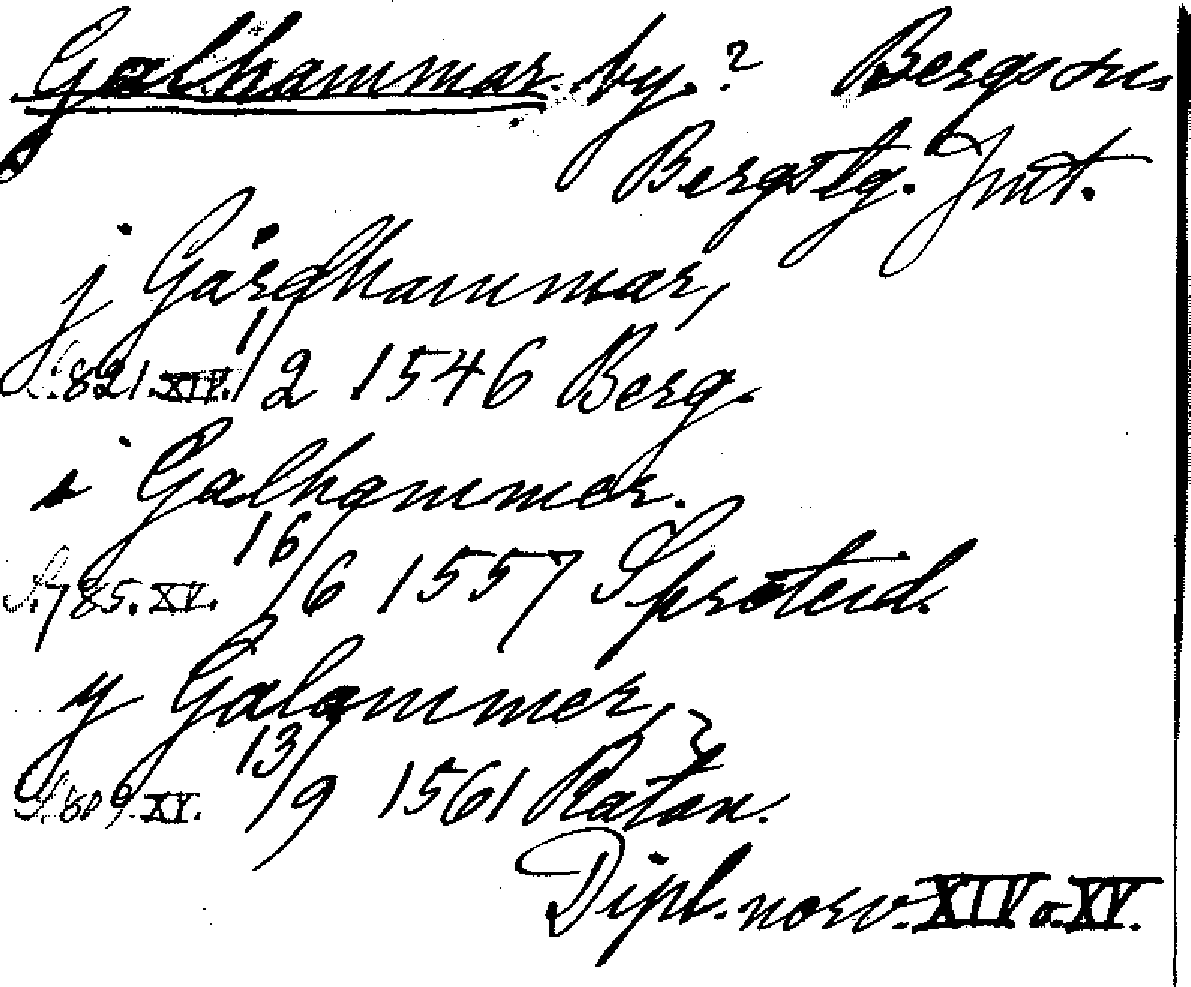 Galhammar by.? Bergs sn.
Bergs tg. Jmt.
j Gårdhammar,
S. 821. XIV. 1/2 1546 Berg.
i Galhammer.
S. 785. XV. 16/6 1557 Sproteid.
y Galammer,
S. 609. XV. 13/9 1561 Ratan.
Dipl. norv. XIV o. XV.